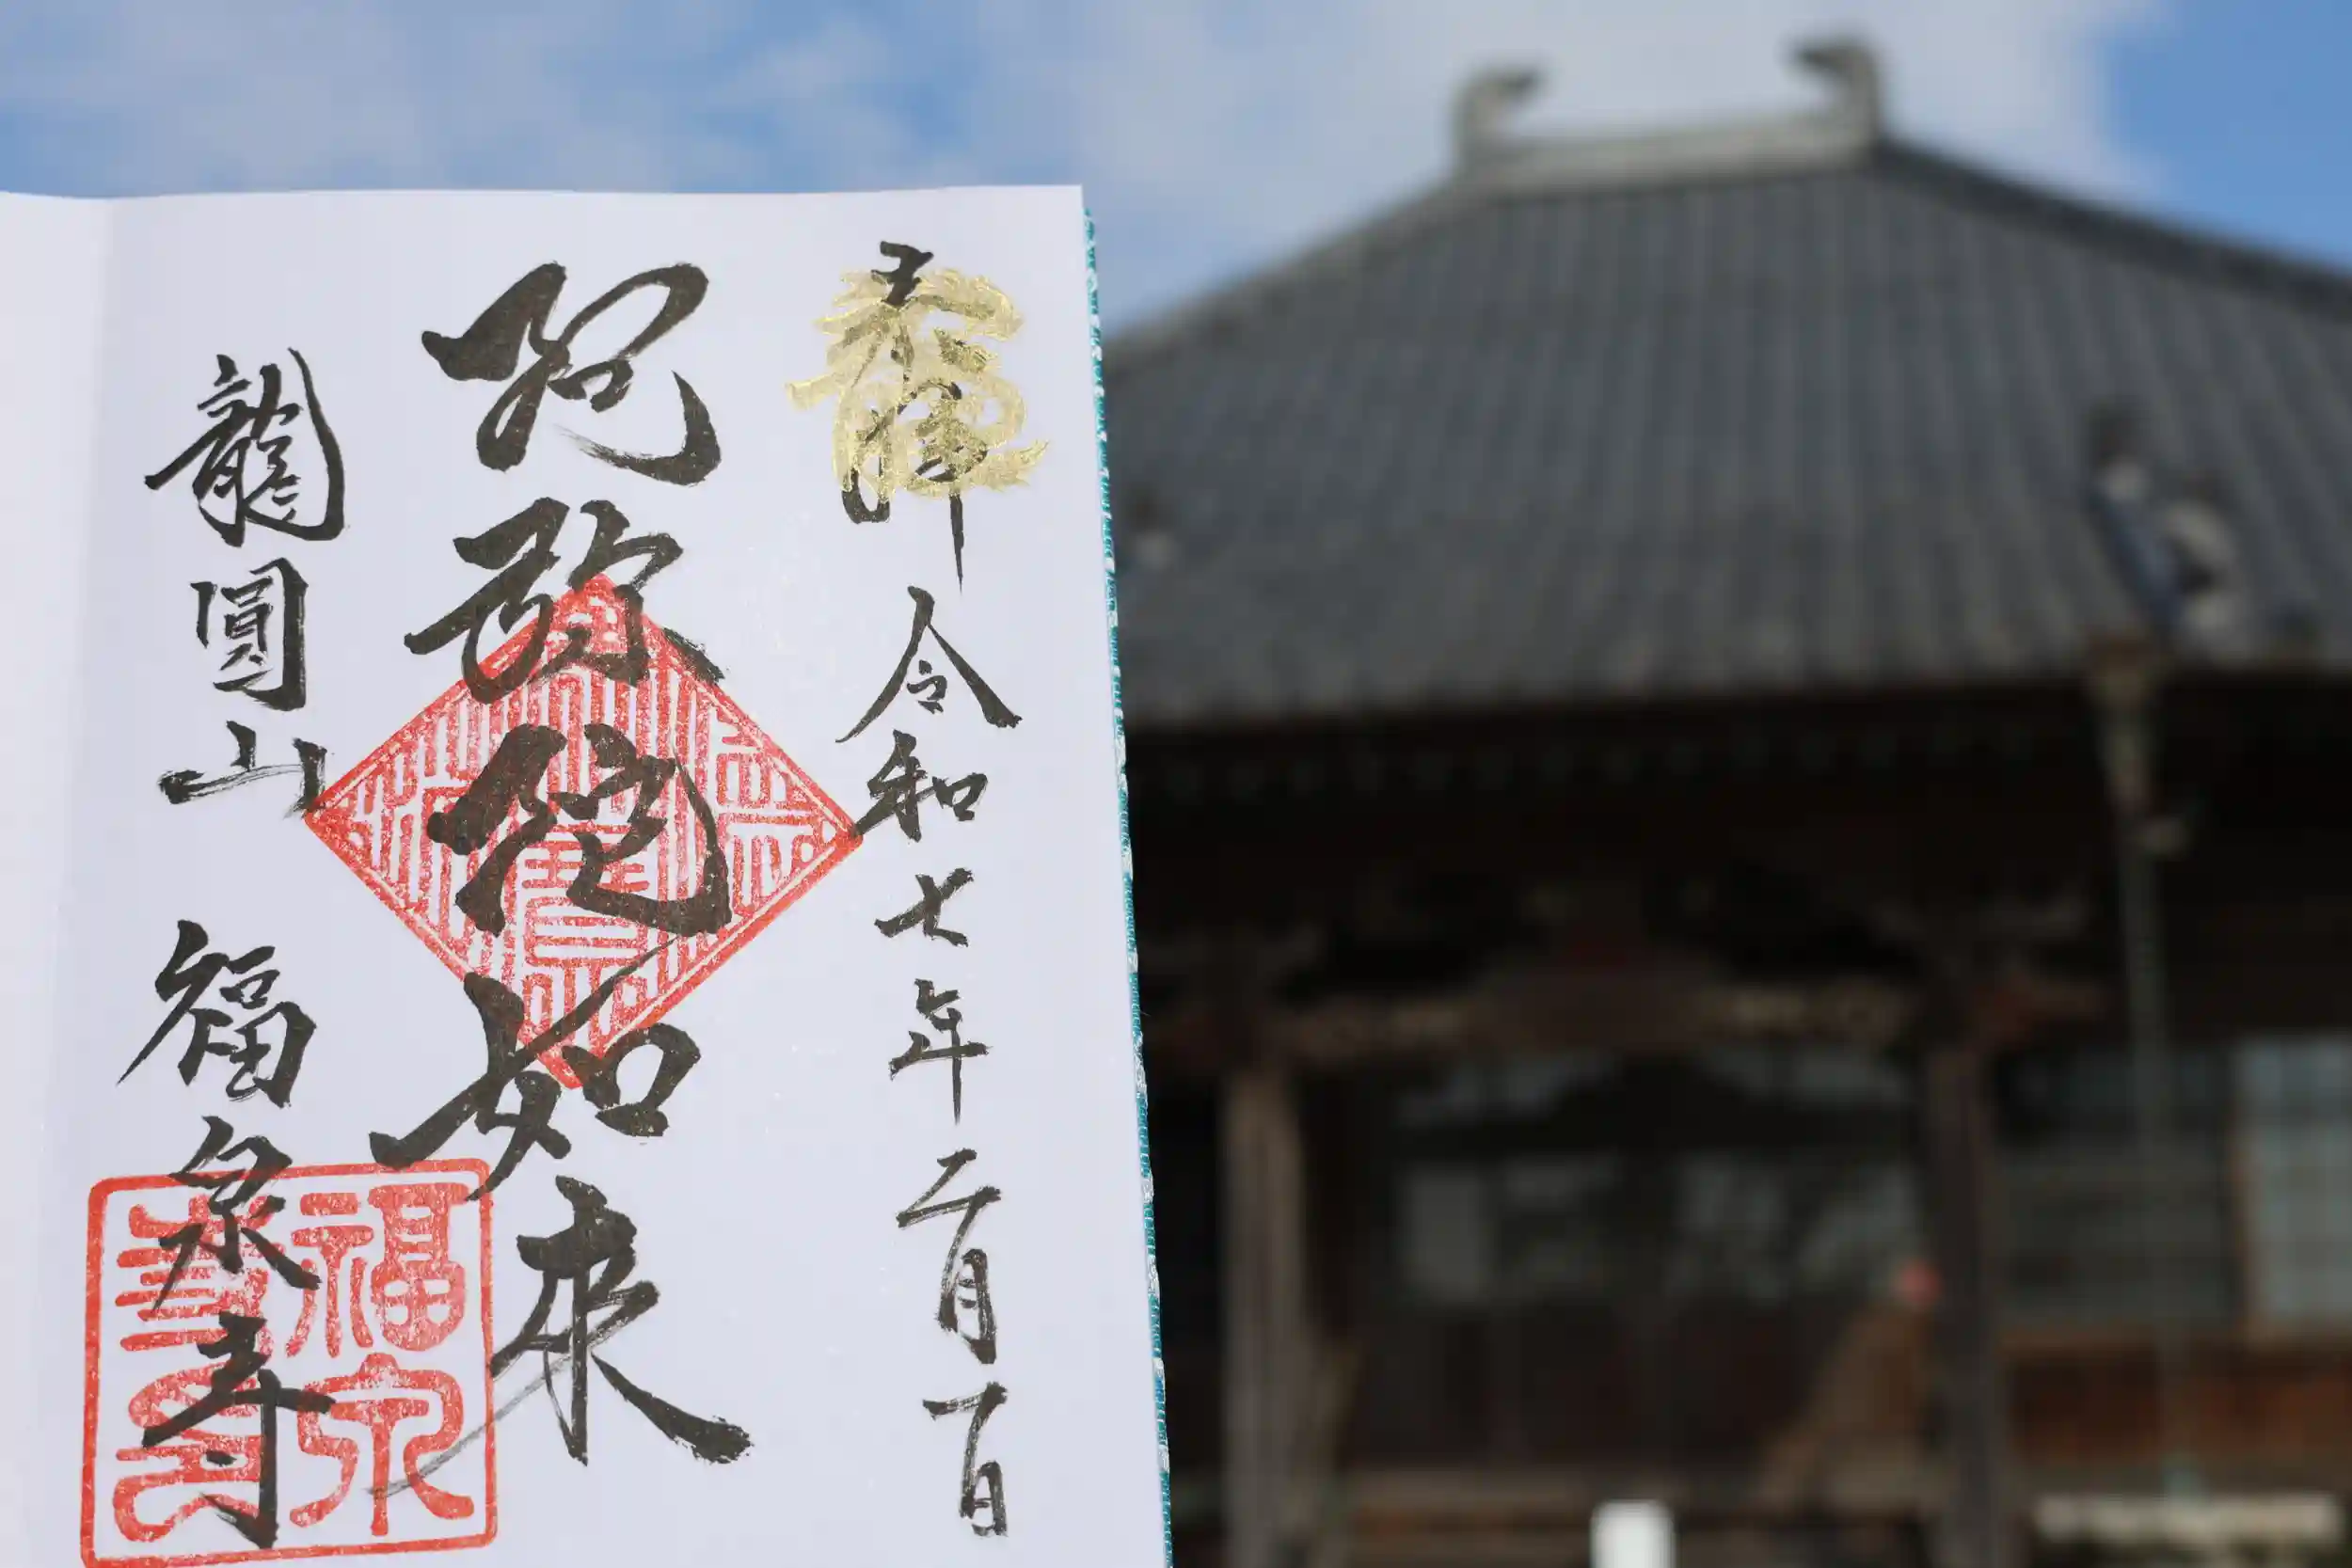 奉拝 令和七年二月一日
阿弥陀如来
龍圓山 福泉寺
龍
福泉